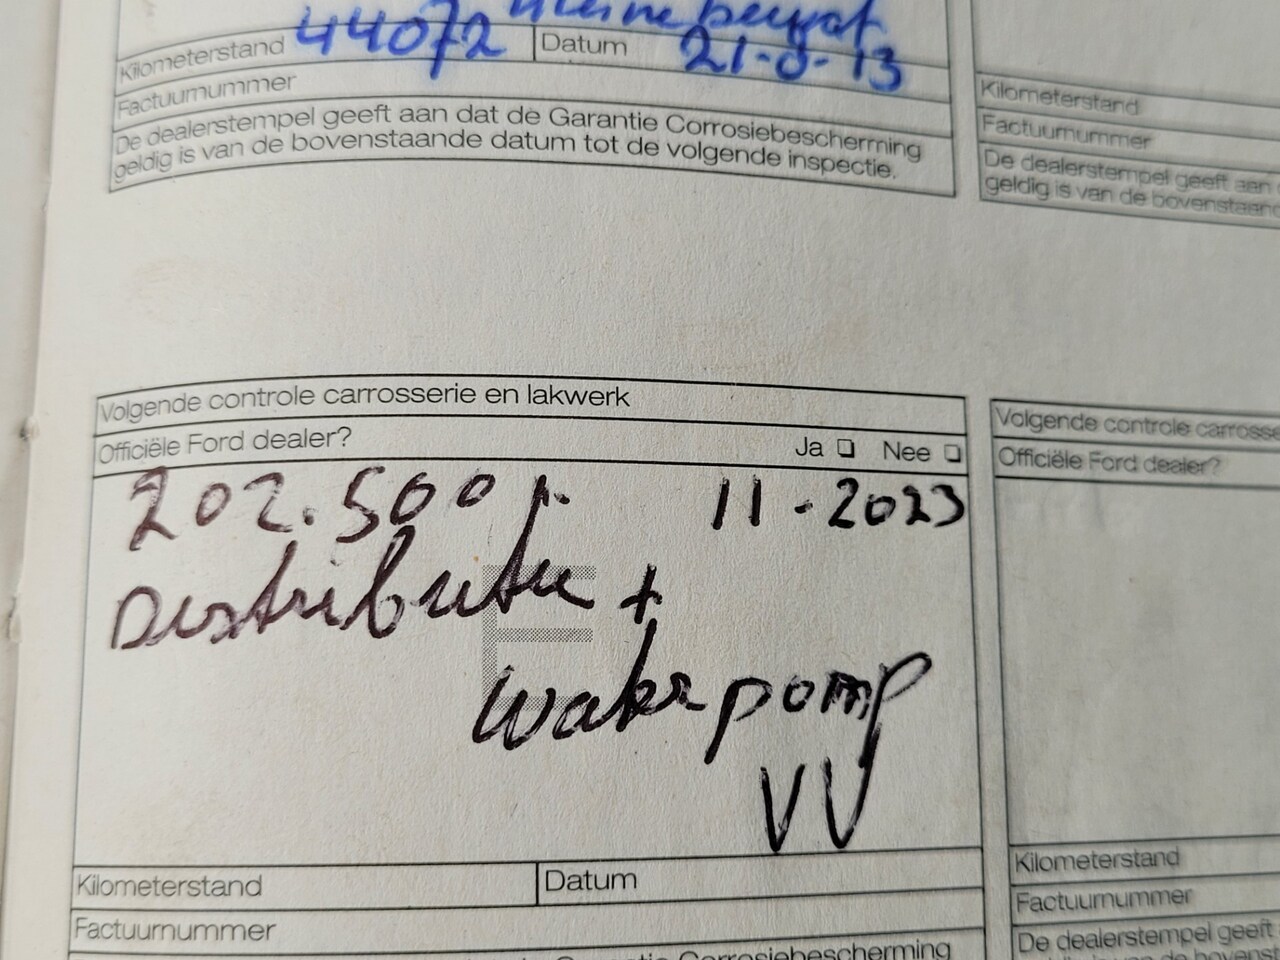 kleine beurt
Kilometerstand 44072 Datum 21-8-13
Factuurnummer
De dealerstempel geeft aan dat de Garantie Corrosiebescherming
geldig is van de bovenstaande datum tot de volgende inspectie.
Kilometerstand
Factuurnummer
De dealerstempel geeft aan
geldig is van de bovenstaan
Volgende controle carrosserie en lakwerk
Officiële Ford dealer? Ja ❏ Nee ❏
202.500 11-2023
Distributie +
waterpomp
VV
Kilometerstand Datum
Factuurnummer
Corrosiebescherming
Volgende controle carrosse
Officiële Ford dealer?
Kilometerstand
Factuurnummer
De dealerstempel geeft